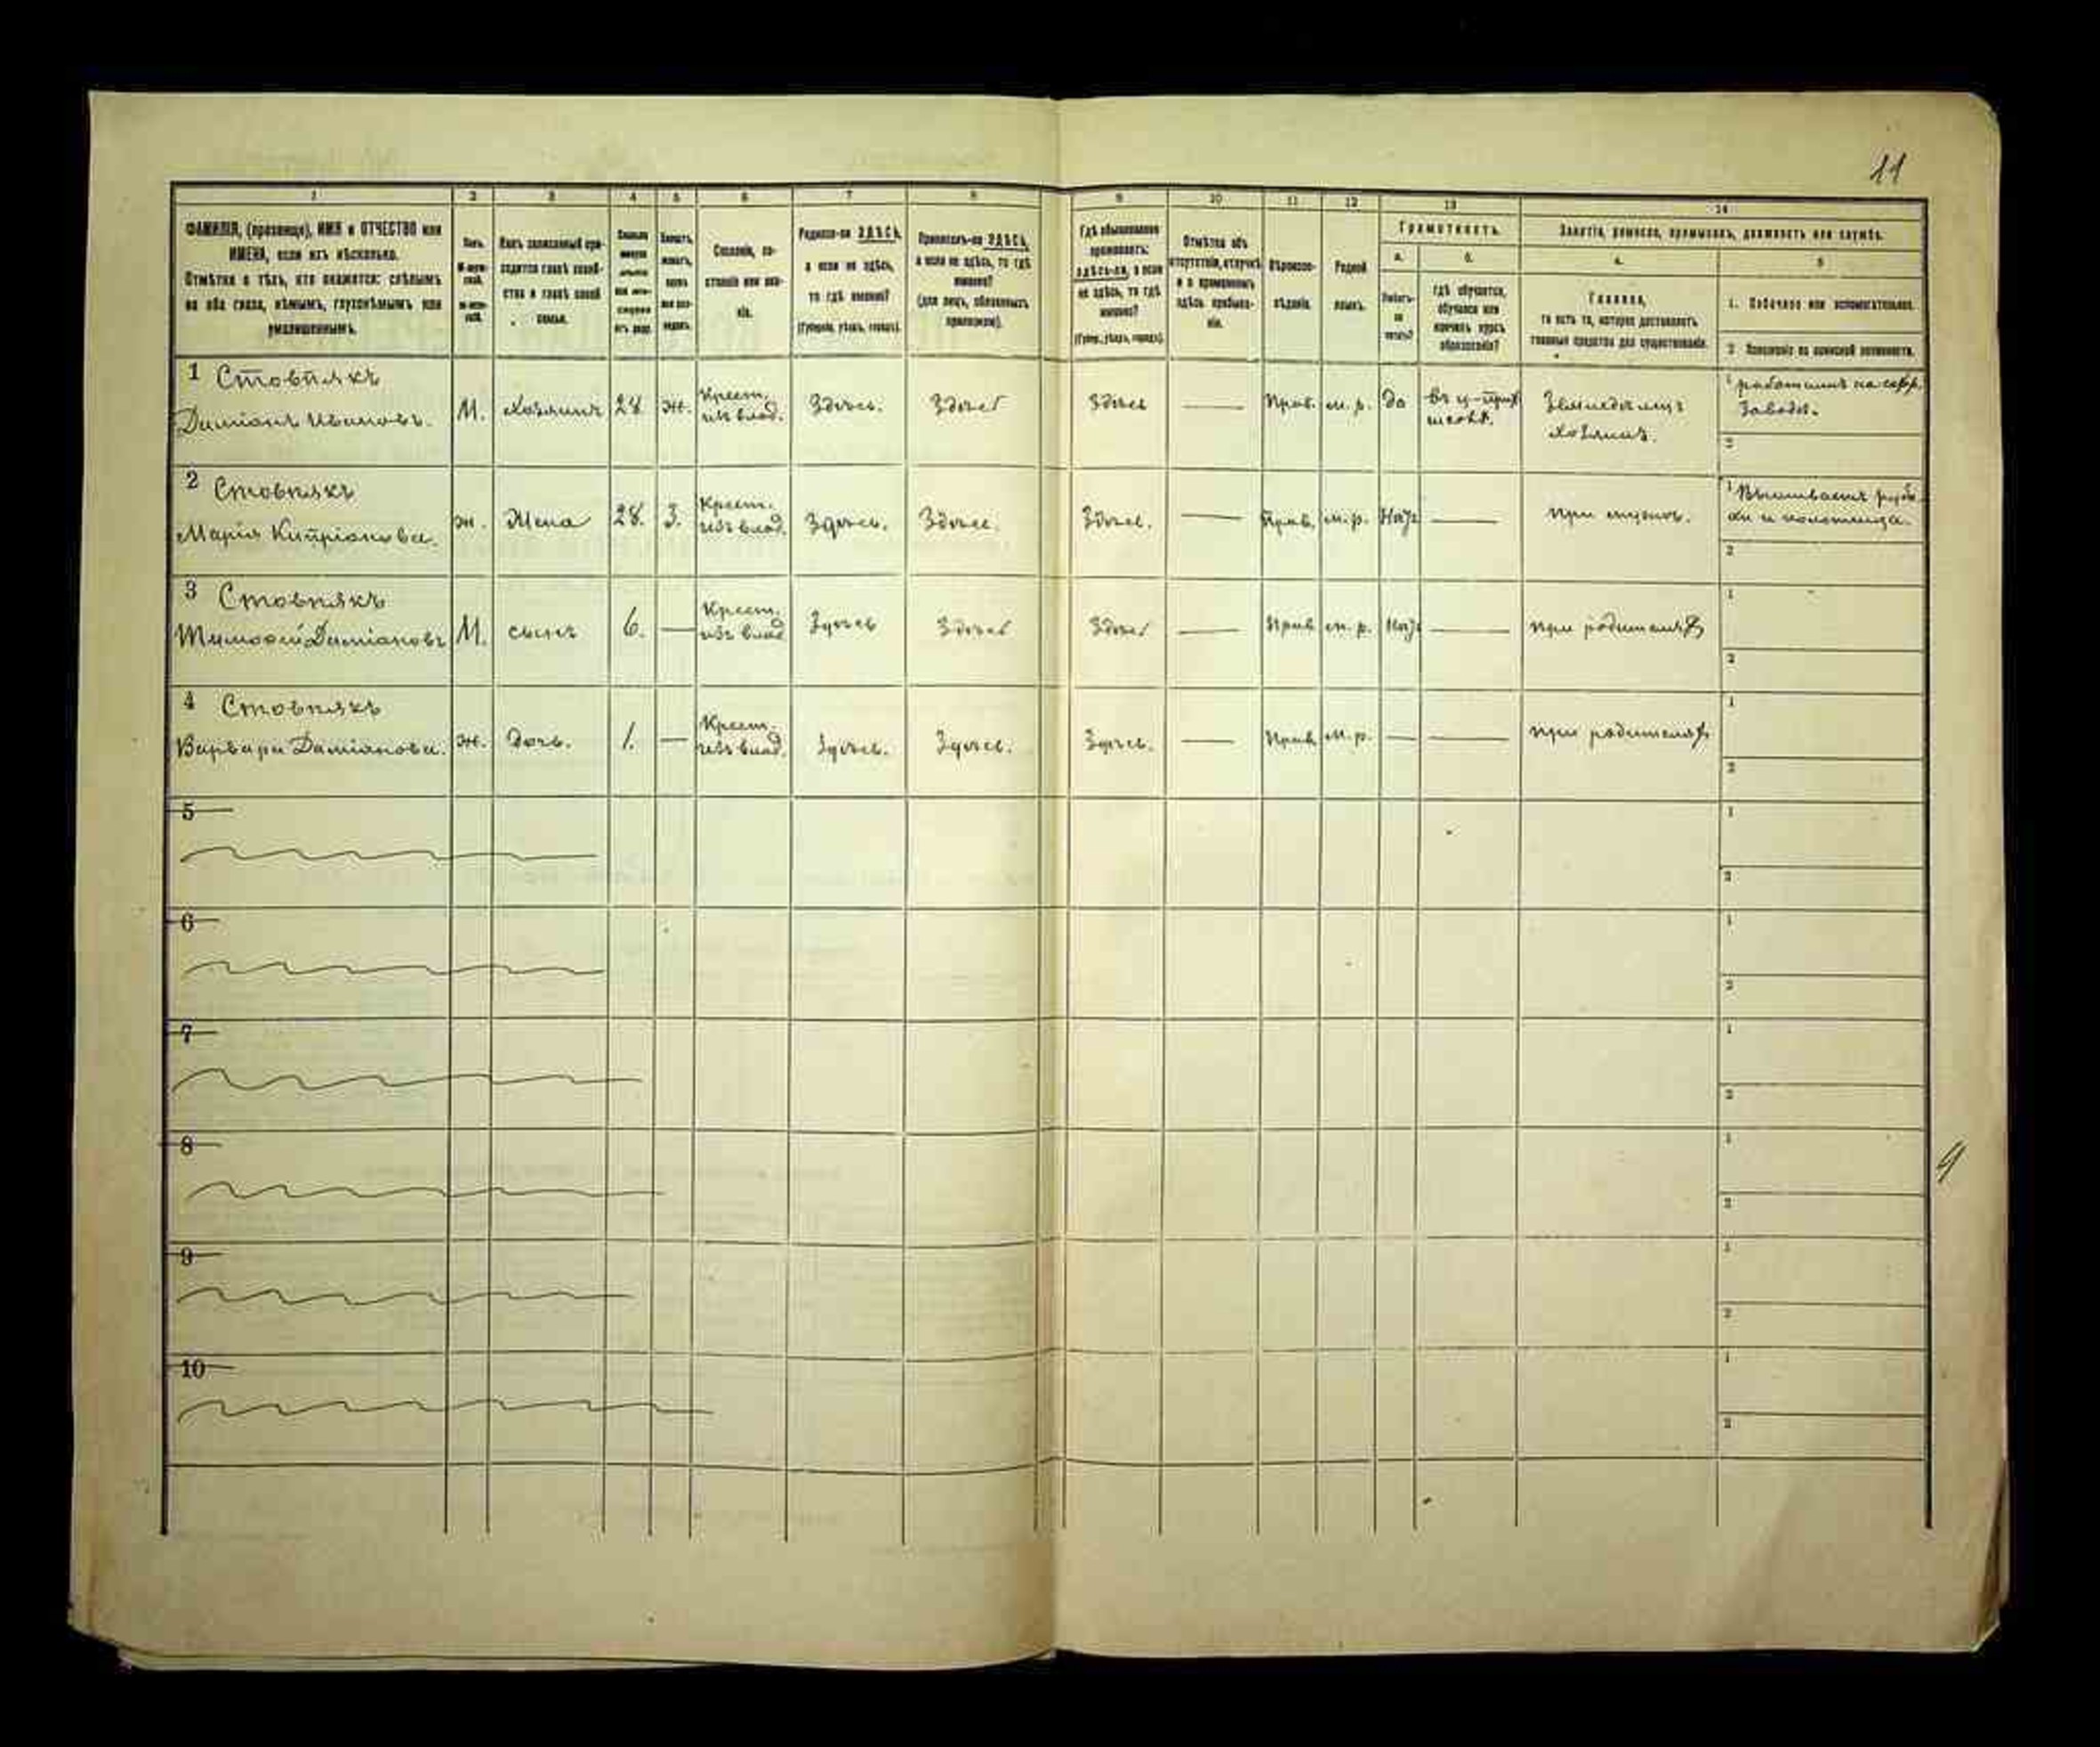 11
1 2 3 4 5 6 7 8 9 10 11 12 13 14
ФАМИЛІЯ, (прозвище), ИМЯ и ОТЧЕСТВО или
ИМЕНА, если ихъ нѣсколько.
Отмѣтка о тѣхъ, кто окажется: слѣпымъ
на оба глаза, нѣмымъ, глухонѣмымъ или
умалишеннымъ.
Полъ.
Какъ записанный при-
ходится главѣ хозяй-
ства и главѣ своей
семьи.
Сословіе, со-
стояніе или зва-
ніе.
Родился-ли ЗДѢСЬ,
а если не здѣсь,
то гдѣ именно?
(Губернія, уѣздъ, городъ).
Приписанъ-ли ЗДѢСЬ,
а если не здѣсь, то гдѣ
именно?
(для лицъ, обязанныхъ
припискою).
Гдѣ обыкновенно
проживаетъ:
здѣсь-ли, а если
не здѣсь, то гдѣ
именно?
(Губер., уѣздъ, городъ).
Отмѣтка объ
отсутствіи, отлучкѣ
и о временномъ
здѣсь пребыва-
ніи.
Вѣроиспо-
вѣданіе.
Родной
языкъ.
Грамотность.
а.
Умѣетъ-
ли
читать?
б.
Гдѣ обучается,
обучался или
кончилъ курсъ
образованія?
Занятіе, ремесло, промыселъ, должность или служба.
а.
Главное,
то есть то, которое доставляетъ
главныя средства для существованія.
б
1. Побочное или вспомогательное.
2 Положеніе по воинской повинности.
1 Стовпякъ
Даміанъ Ивановъ. М. Хозяинъ 28 ж. Крест. изъ влад. Здѣсь. Здѣсь Здѣсь — Прав. м. р. да въ ц-прих школѣ. Земледѣлецъ хозяинъ. 1 работникъ на сахар. заводѣ.
2
2 Стовпякъ
Марія Кипріянова. ж. Жена 28. З. Крест. изъ влад. Здѣсь. Здѣсь. Здѣсь. — Прав. м. р. Нѣтъ — При мужѣ. 1 Вышиваетъ рубахи и полотенца.
2
3 Стовпякъ
Тимофей Даміановъ М. сынъ 6. — Крест. изъ влад Здѣсь Здѣсь Здѣсь — Прав м. р. Нѣтъ — при родителяхъ 1
2
4 Стовпякъ
Варвара Даміанова. ж. дочь. 1. — Крест. изъ влад. Здѣсь. Здѣсь. Здѣсь. — Прав м. р. — — при родителяхъ 1
2
5 1
2
6 1
2
7 1
2
8 1
2
9 1
2
10 1
2